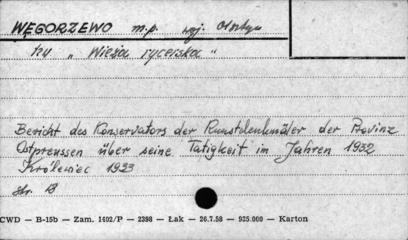 WĘGORZEWO m.p. woj. Olsztyn
tzw „ Wieża rycerska "
Bericht des Konservators der Kunstdenkmäler der Provinz
Ostpreussen über seine Tätigkeit im Jahren 1932
Królewiec 1933
str. 13
CWD — B-15b — Zam. 1402/P — 2398 — Łak — 26.7.58 — 925.000 — Karton